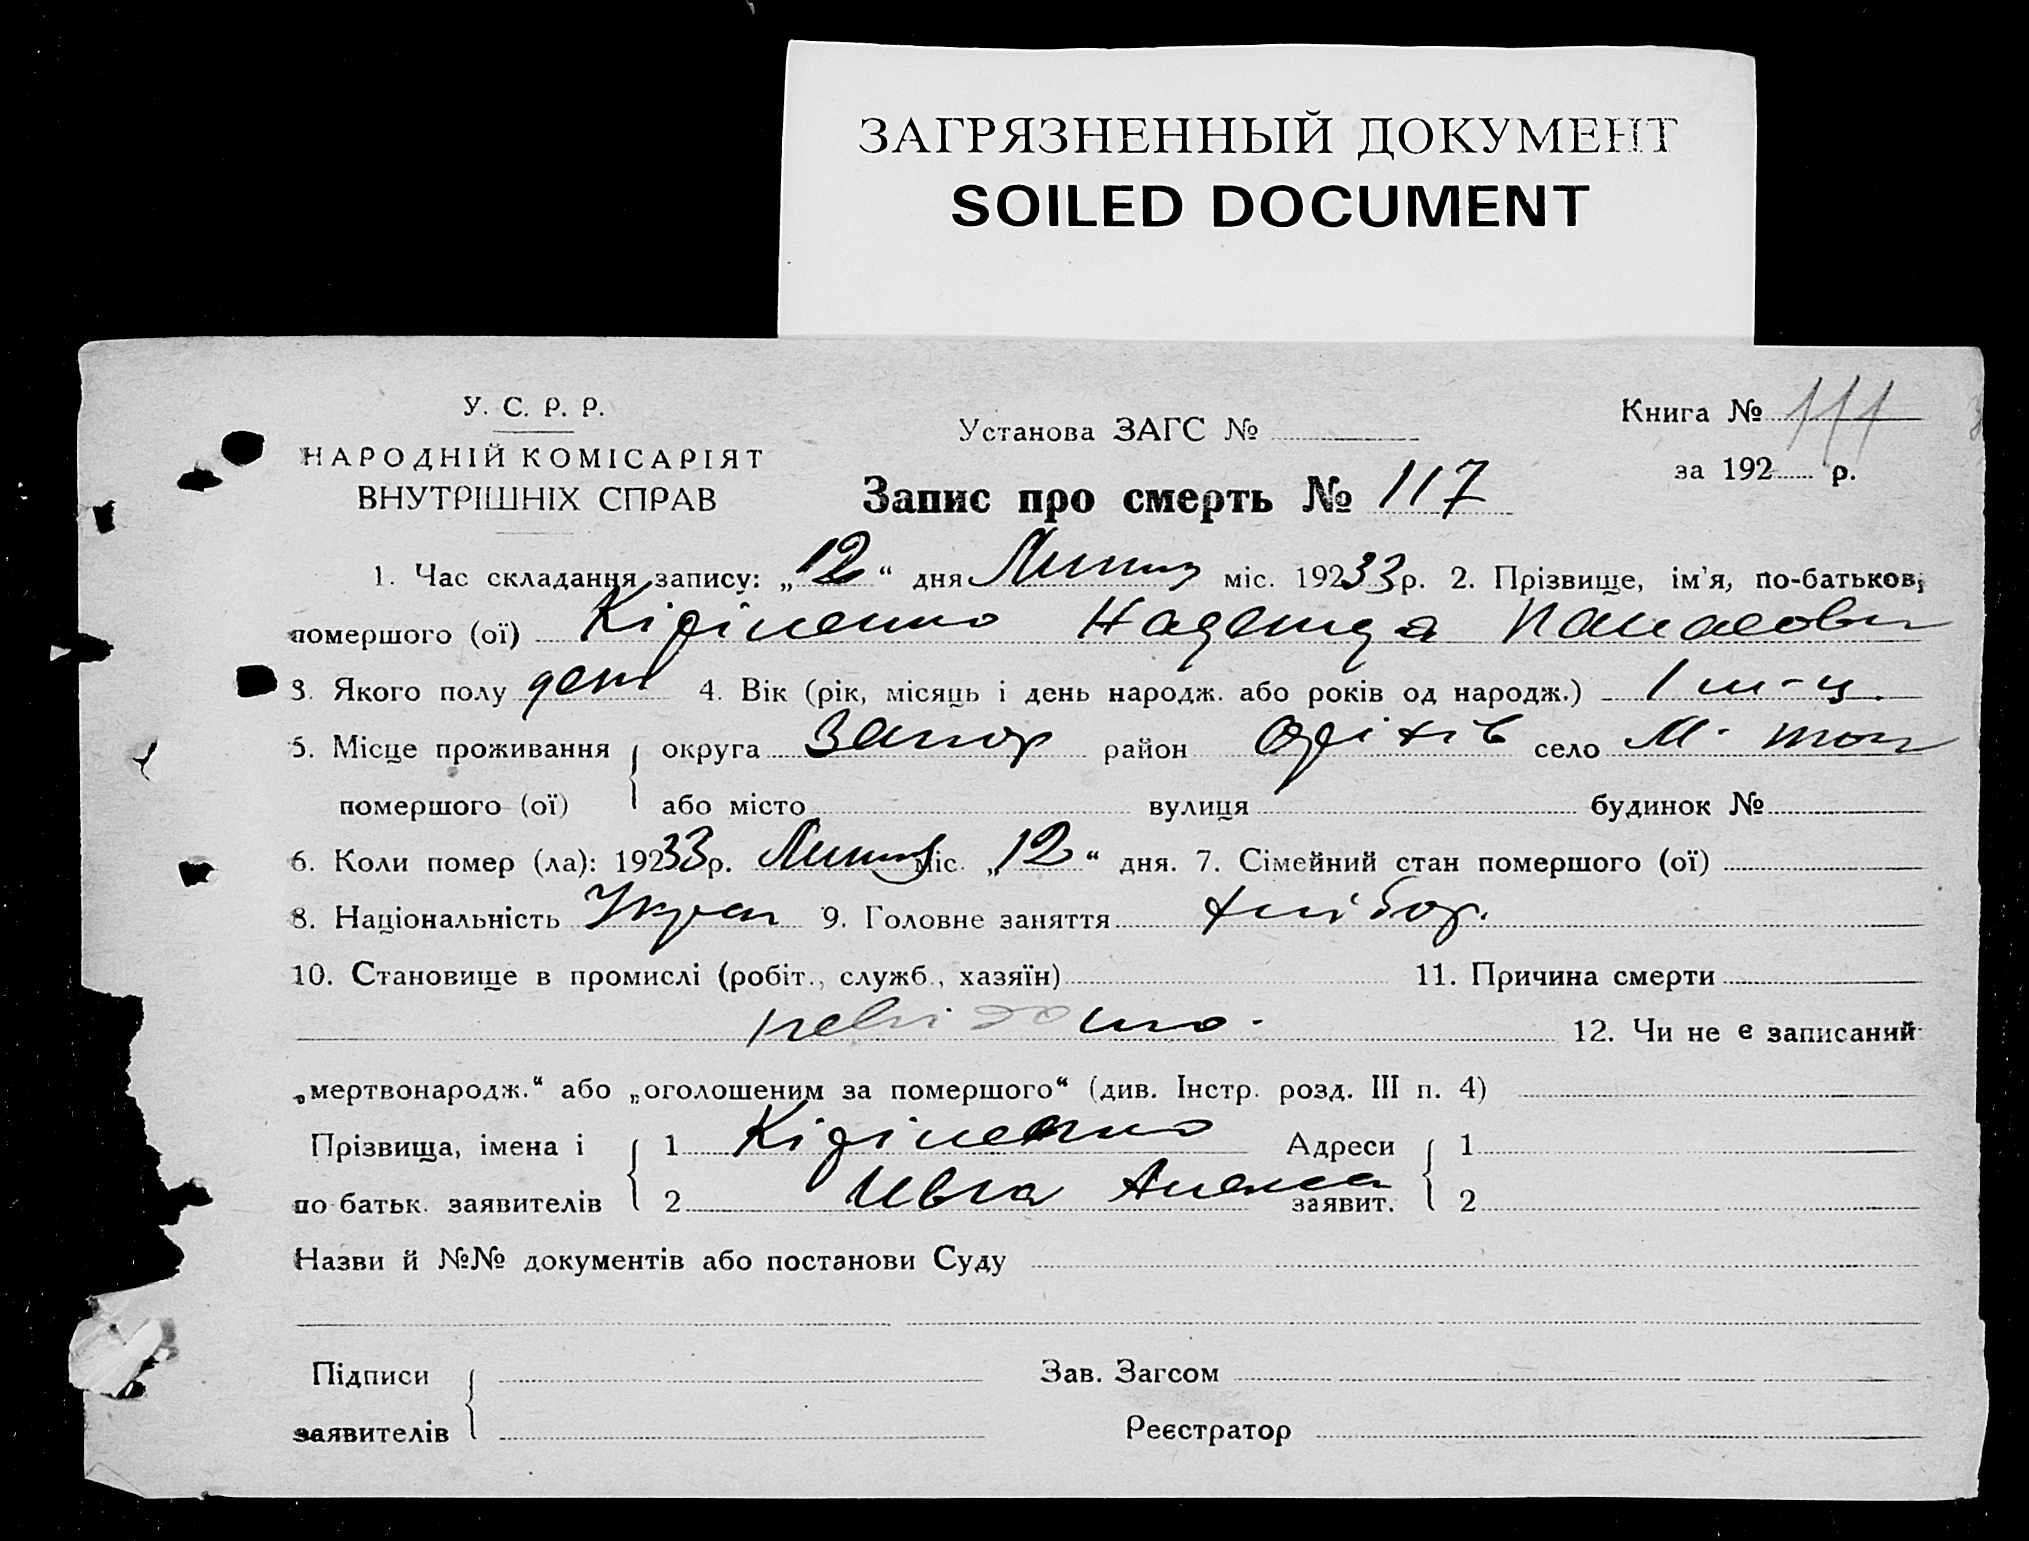 ЗАГРЯЗНЕННЫЙ ДОКУМЕНТ
SOILED DOCUMENT
У. С. Р. Р.
НАРОДНІЙ КОМІСАРІЯТ
ВНУТРІШНІХ СПРАВ
Установа ЗАГС №
Книга № 111
за 192 р.
Запис про смерть № 117
1. Час складання запису: „12“ дня Липня міс. 19233 р. 2. Прізвище, ім'я, по-батькові,
помершого (ої) Кіріченко Надежда Панасовн
3. Якого полу жен 4. Вік (рік, місяць і день народж. або років од народж.) 1 м-ц.
5. Місце проживання округа Запор район Оріхів село М. Ток
помершого (ої) або місто вулиця будинок №
6. Коли помер (ла): 19233 р. Липня міс. „12“ дня. 7. Сімейний стан помершого (ої)
8. Національність Укран 9. Головне заняття хлібор.
10. Становище в промислі (робіт., служб., хазяїн) 11. Причина смерти
невідомо. 12. Чи не є записаний
„мертвонародж.“ або „оголошеним за помершого“ (див. Інстр. розд. III п. 4)
Прізвища, імена і 1 Кіріченко Адреси 1
по батьк. заявителів 2 Ивга заявит. 2
Назви й №№ документів або постанови Суду
Підписи Зав. Загсом
заявителів Реєстратор